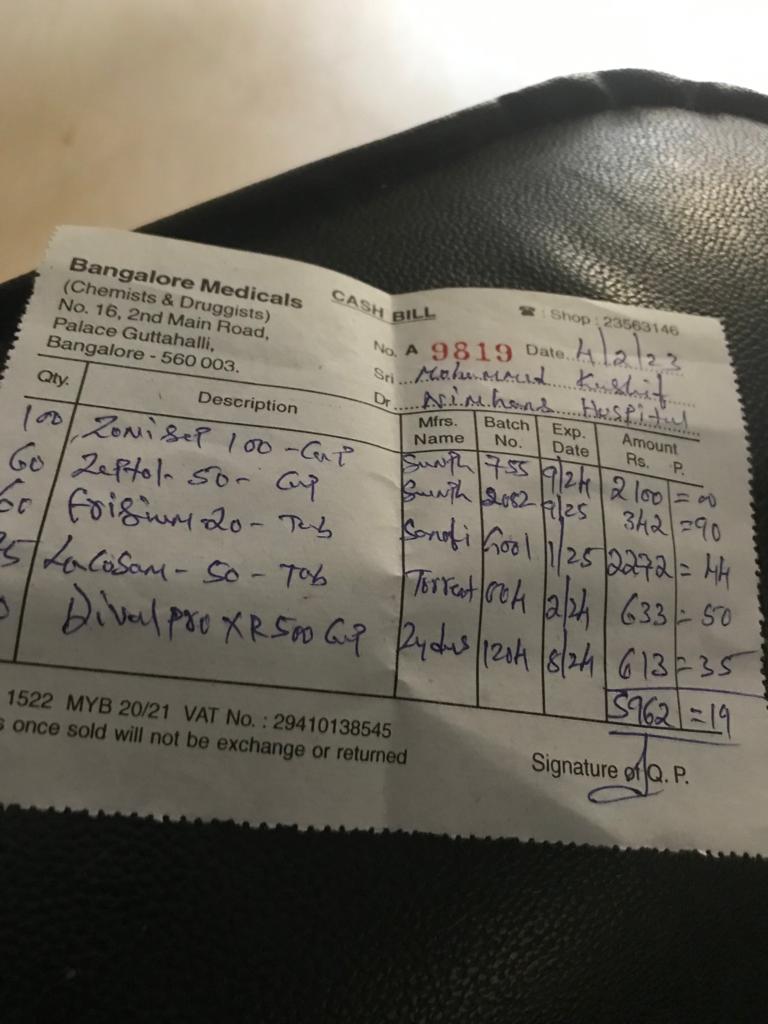 Bangalore Medicals
(Chemists & Druggists)
No. 16, 2nd Main Road,
Palace Guttahalli,
Bangalore - 560 003.
CASH BILL
☎ : Shop : 23563146
No. A 9819 Date.. 4/2/23
Sri ... Mohammed Kashif
Dr ... Nimhans Hospital
Qty. Description Mfrs. Name Batch No. Exp. Date Amount Rs. P.
100 Zonisep 100 - Cap 755 9/24 2100 = 00
60 Zeptol - 50 - Cap 2082 9/25 342 = 90
60 Frisium 20 - Tab Sanofi G001 1/25 2272 = 44
5 Lacosam - 50 - Tab Torrent 004 2/24 633 = 50
0 Divalpro XR 500 Cap Zydus 1204 8/24 613 = 35
5962 = 19
1522 MYB 20/21 VAT No. : 29410138545
s once sold will not be exchange or returned
Signature of Q. P.